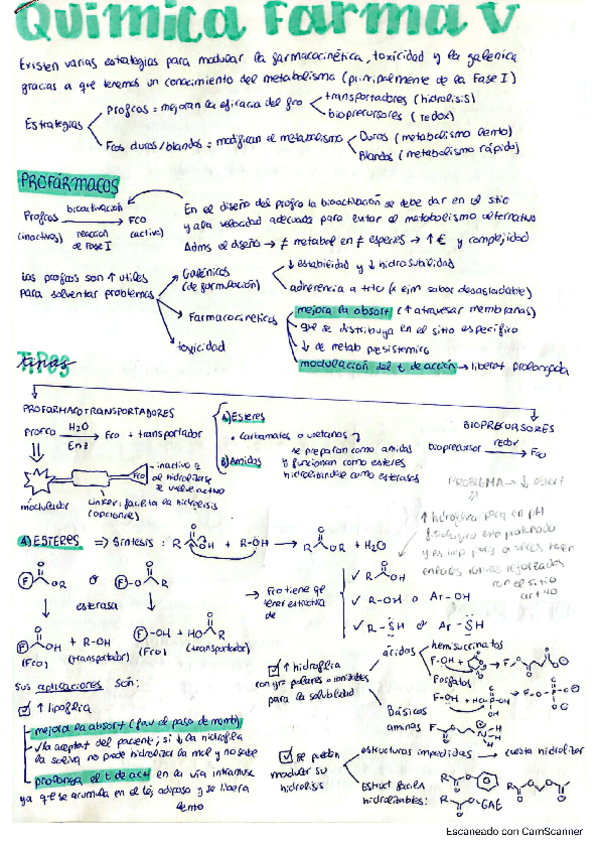 Quimica Farma V
Existen varias estrategias para modular la farmacocinética, toxicidad y la galenica
gracias a que tenemos un conocimiento del metabolismo (principalmente de la Fase I)
Estrategias
Profcos = mejoran la eficacia del fco
transportadores (hidrolisis)
bioprecursores (redox)
Fcos duros/blandos = modifican el metabolismo
Duros (metabolismo lento)
Blandos (metabolismo rápido)
PROFÁRMACOS
Profcos bioactivación Fco
(inactivos) reacción de Fase I (activo)
En el diseño del profco la bioactivación se debe dar en el sitio
y a la velocidad adecuada para evitar el metabolismo alternativo
Adms el diseño → ≠ metabol en ≠ especies → ↑ € y complejidad
Los profcos son ↑ utiles
para solventar problemas
Galénicos
(de formulación)
↓ estabilidad y ↓ hidrosolubilidad
adherencia a tto (x ejm sabor desagradable)
Farmacocineticos
mejora la absort (↑ atravesar membranas)
que se distribuya en el sitio especifico
↓ de metab presistemico
modulación del t de acción → liberat prolongada
toxicidad
TIPOS
PROFARMACOTRANSPORTADORES
Profco H2O Enz Fco + transportador
A) Esteres
• Carbamatos o uretanos
B) Amidas
se preparan como amidas
y funcionan como esteres
hidrolizandose como esterasas
BIOPRECURSORES
bioprecursor redox Fco
Fco
- inactivo y
al hidrolizarse
se vuelve activo
modulador
linker: facilita la hidrolisis
(opcional)
PROBLEMA → ↓ absort
A) ESTERES ⇒ Sintesis : R OH + R-OH → R OR + H2O
F OR o F-O R
esterasa
F OH + R-OH F-OH + HO R
(Fco) (transportador) (Fco) (transportador)
→ Fco tiene que
tener estructura
de
✓ R OH
✓ R-OH o Ar-OH
✓ R-SH o Ar-SH
Sus aplicaciones son:
☑ ↑ lipofilia
mejora la absort (fav el paso de memb)
✓ la aceptat del pacient; si ↓ la hidrofilia
la saliva no puede hidrolizar la mol y no sabe
prolonga el t de act en la via intramusc
ya que se acumula en el tej adiposo y se libera
lento
☑ ↑ hidrofilia
con grs polares o ionizables
para la solubilidad
ácidos
hemisuccinatos
F-OH +
Fosfatos
F-OH +
Básicos
aminos
☑ se pueden
modular su
hidrolisis
estructuras impedidas → cuesta hidrolizar
Estruct facil
hidrolizables:
GAE
Escaneado con CamScanner